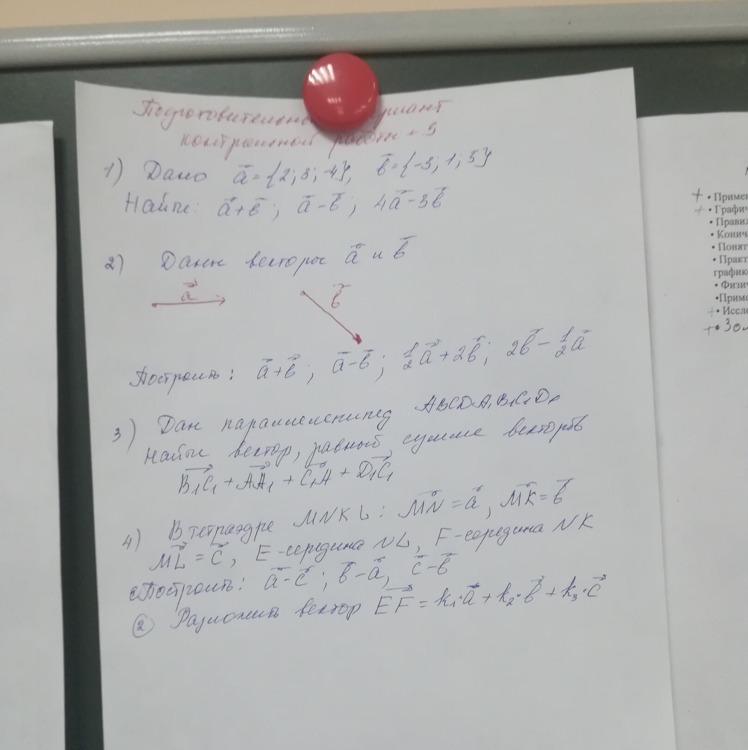 Подготовительн
контрольной работы №5
1) Дано a⃗ = {2; 3; -4}, b⃗ = {-3; 1; 5}
Найти: a⃗+b⃗; a⃗-b⃗; 4a⃗-3b⃗
2) Даны векторы a⃗ и b⃗
a⃗ b⃗
Построить: a⃗+b⃗; a⃗-b⃗; ½a⃗+2b⃗; 2b⃗-½a⃗
3) Дан параллелепипед ABCDA₁B₁C₁D₁
Найти вектор, равный сумме векторов
B₁C₁ + AA₁ + C₁A + D₁C₁
4) В тетраэдре MNKL: MN = a⃗, MK = b⃗
ML = c⃗, E-середина NL, F-середина NK
Построить: a⃗-c⃗; b⃗-a⃗, c⃗-b⃗
② Разложить вектор EF = k₁·a⃗ + k₂·b⃗ + k₃·c⃗
• Приме
• Графич
• Правил
• Конич
• Понят
• Практ
график
• Физич
•Приме
• Иссле